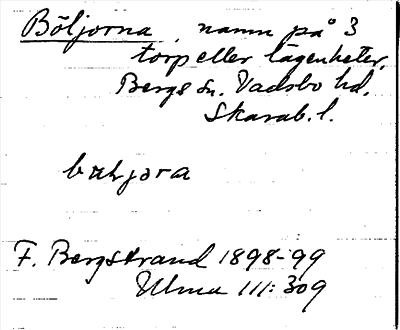 Böljorna, namn på 3
torp eller lägenheter.
Bergs sn. Vadsbo hd.
Skarab. l.
F. Bergstrand 1898-99
Ulma 111: 309